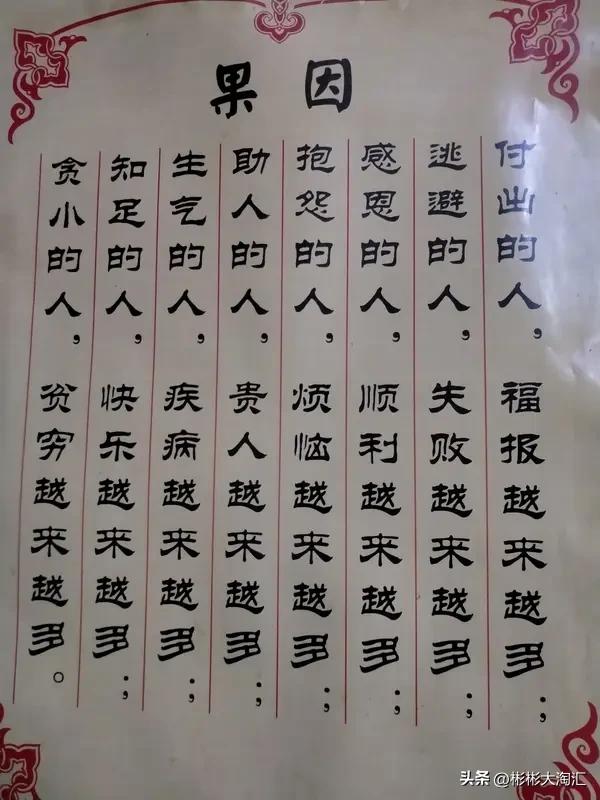 因果
付出的人，福报越来越多；
逃避的人，失败越来越多；
感恩的人，顺利越来越多；
抱怨的人，烦恼越来越多；
助人的人，贵人越来越多；
生气的人，疾病越来越多；
知足的人，快乐越来越多；
贪小的人，贫穷越来越多。
头条 @彬彬大淘汇